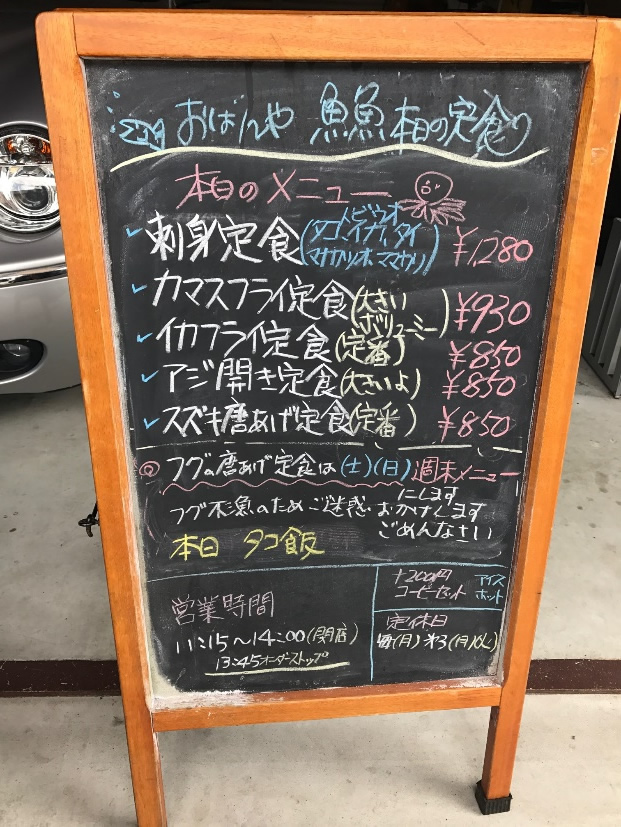 おばんや 魚魚 本日の定食
本日のメニュー
刺身定食(トビウオ タコ、イカ、タイ マナガツオ、ママカリ) ¥1,280
カマスフライ定食(大きい ボリューミー) ¥930
イカフライ定食(定番) ¥850
アジ開き定食(大きいよ) ¥850
スズキ唐あげ定食(定番) ¥850
フグの唐あげ定食は(土)(日)週末メニュー
にします
フグ不漁のためご迷惑おかけします
ごめんなさい
本日 タコ飯
+200円 アイス
コーヒーセット ホット
営業時間
11:15〜14:00(閉店)
13:45オーダーストップ
定休日
(月) 第3(月)